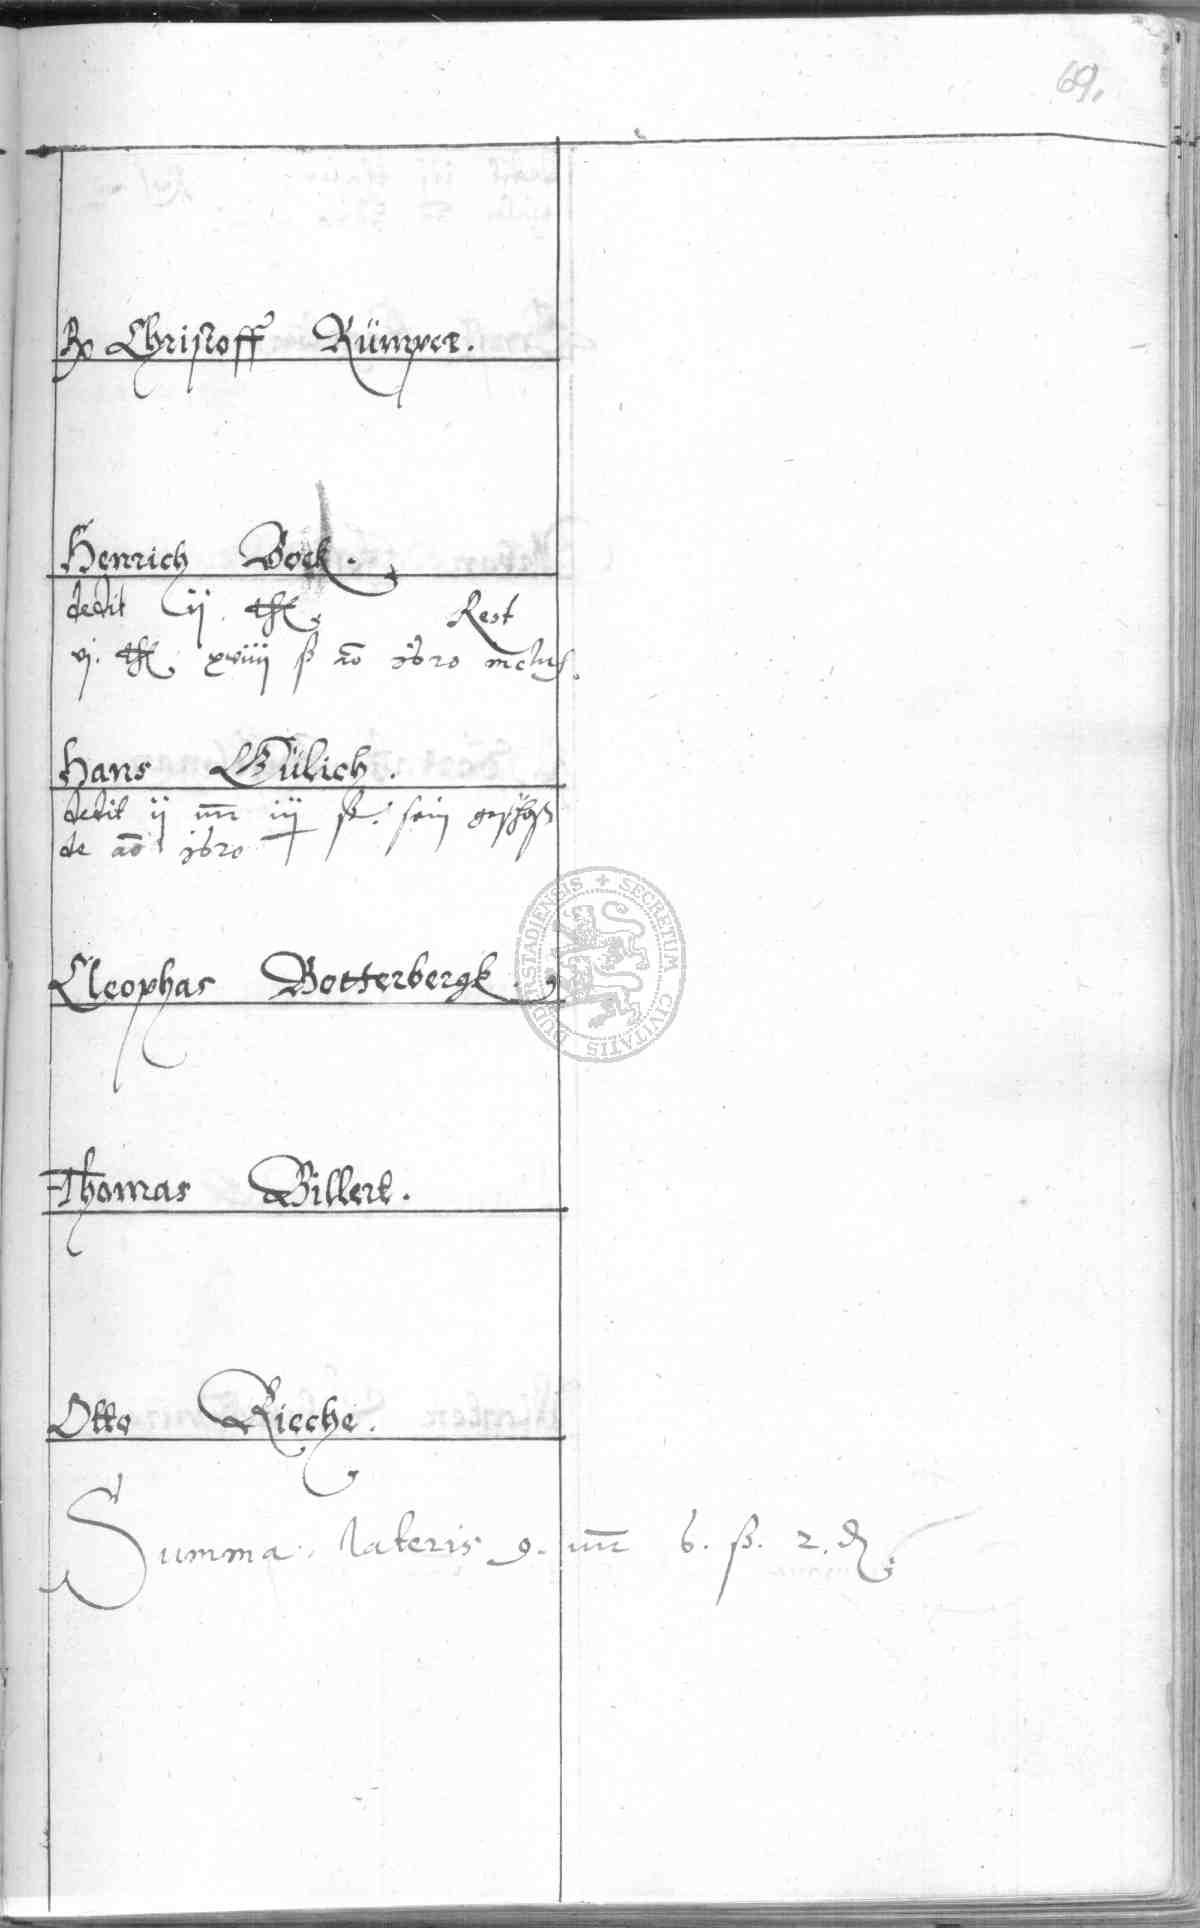 69.
Christoff Rümper.
Henrich Bock.
dedit ii thl. Rest
vj. thl. xviiij ß aō 1620 inclus.
Hans Gülich.
dedit ii iij sein geschoß
de aō 1620
Cleophas Botterbergk.
Thomas Billert.
Otto Rieche.
Summa lateris 9. 6. ß. 2. ₰
SECRETUM CIVITATIS DUDERSTADIENSIS